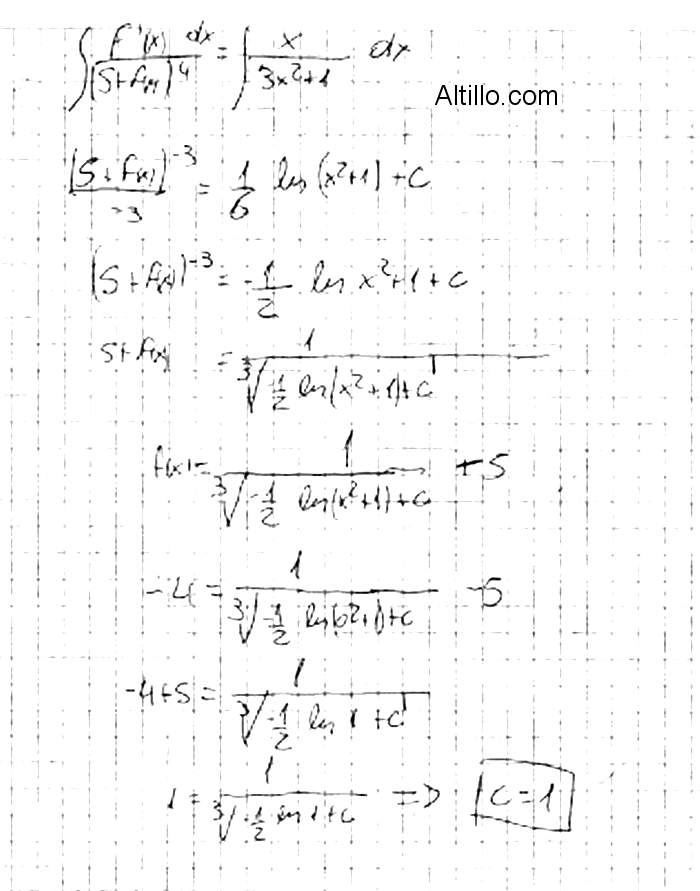 ∫ f'(x) dx / (5+f(x))^4 = ∫ x / 3x²+1 dx
Altillo.com
[5+f(x)]^-3 / -3 = 1/6 ln (x²+1) + C
(5+f(x))^-3 = -1/2 ln x²+1 + C
5+f(x) = 1 / ∛(-1/2 ln(x²+1)+C)
f(x) = 1 / ∛(-1/2 ln(x²+1)+C) +5
-4 = 1 / ∛(-1/2 ln(0²+1)+C) -5
-4+5 = 1 / ∛(-1/2 ln 1 + C)
1 = 1 / ∛(-1/2 ln 1+C) => C=1